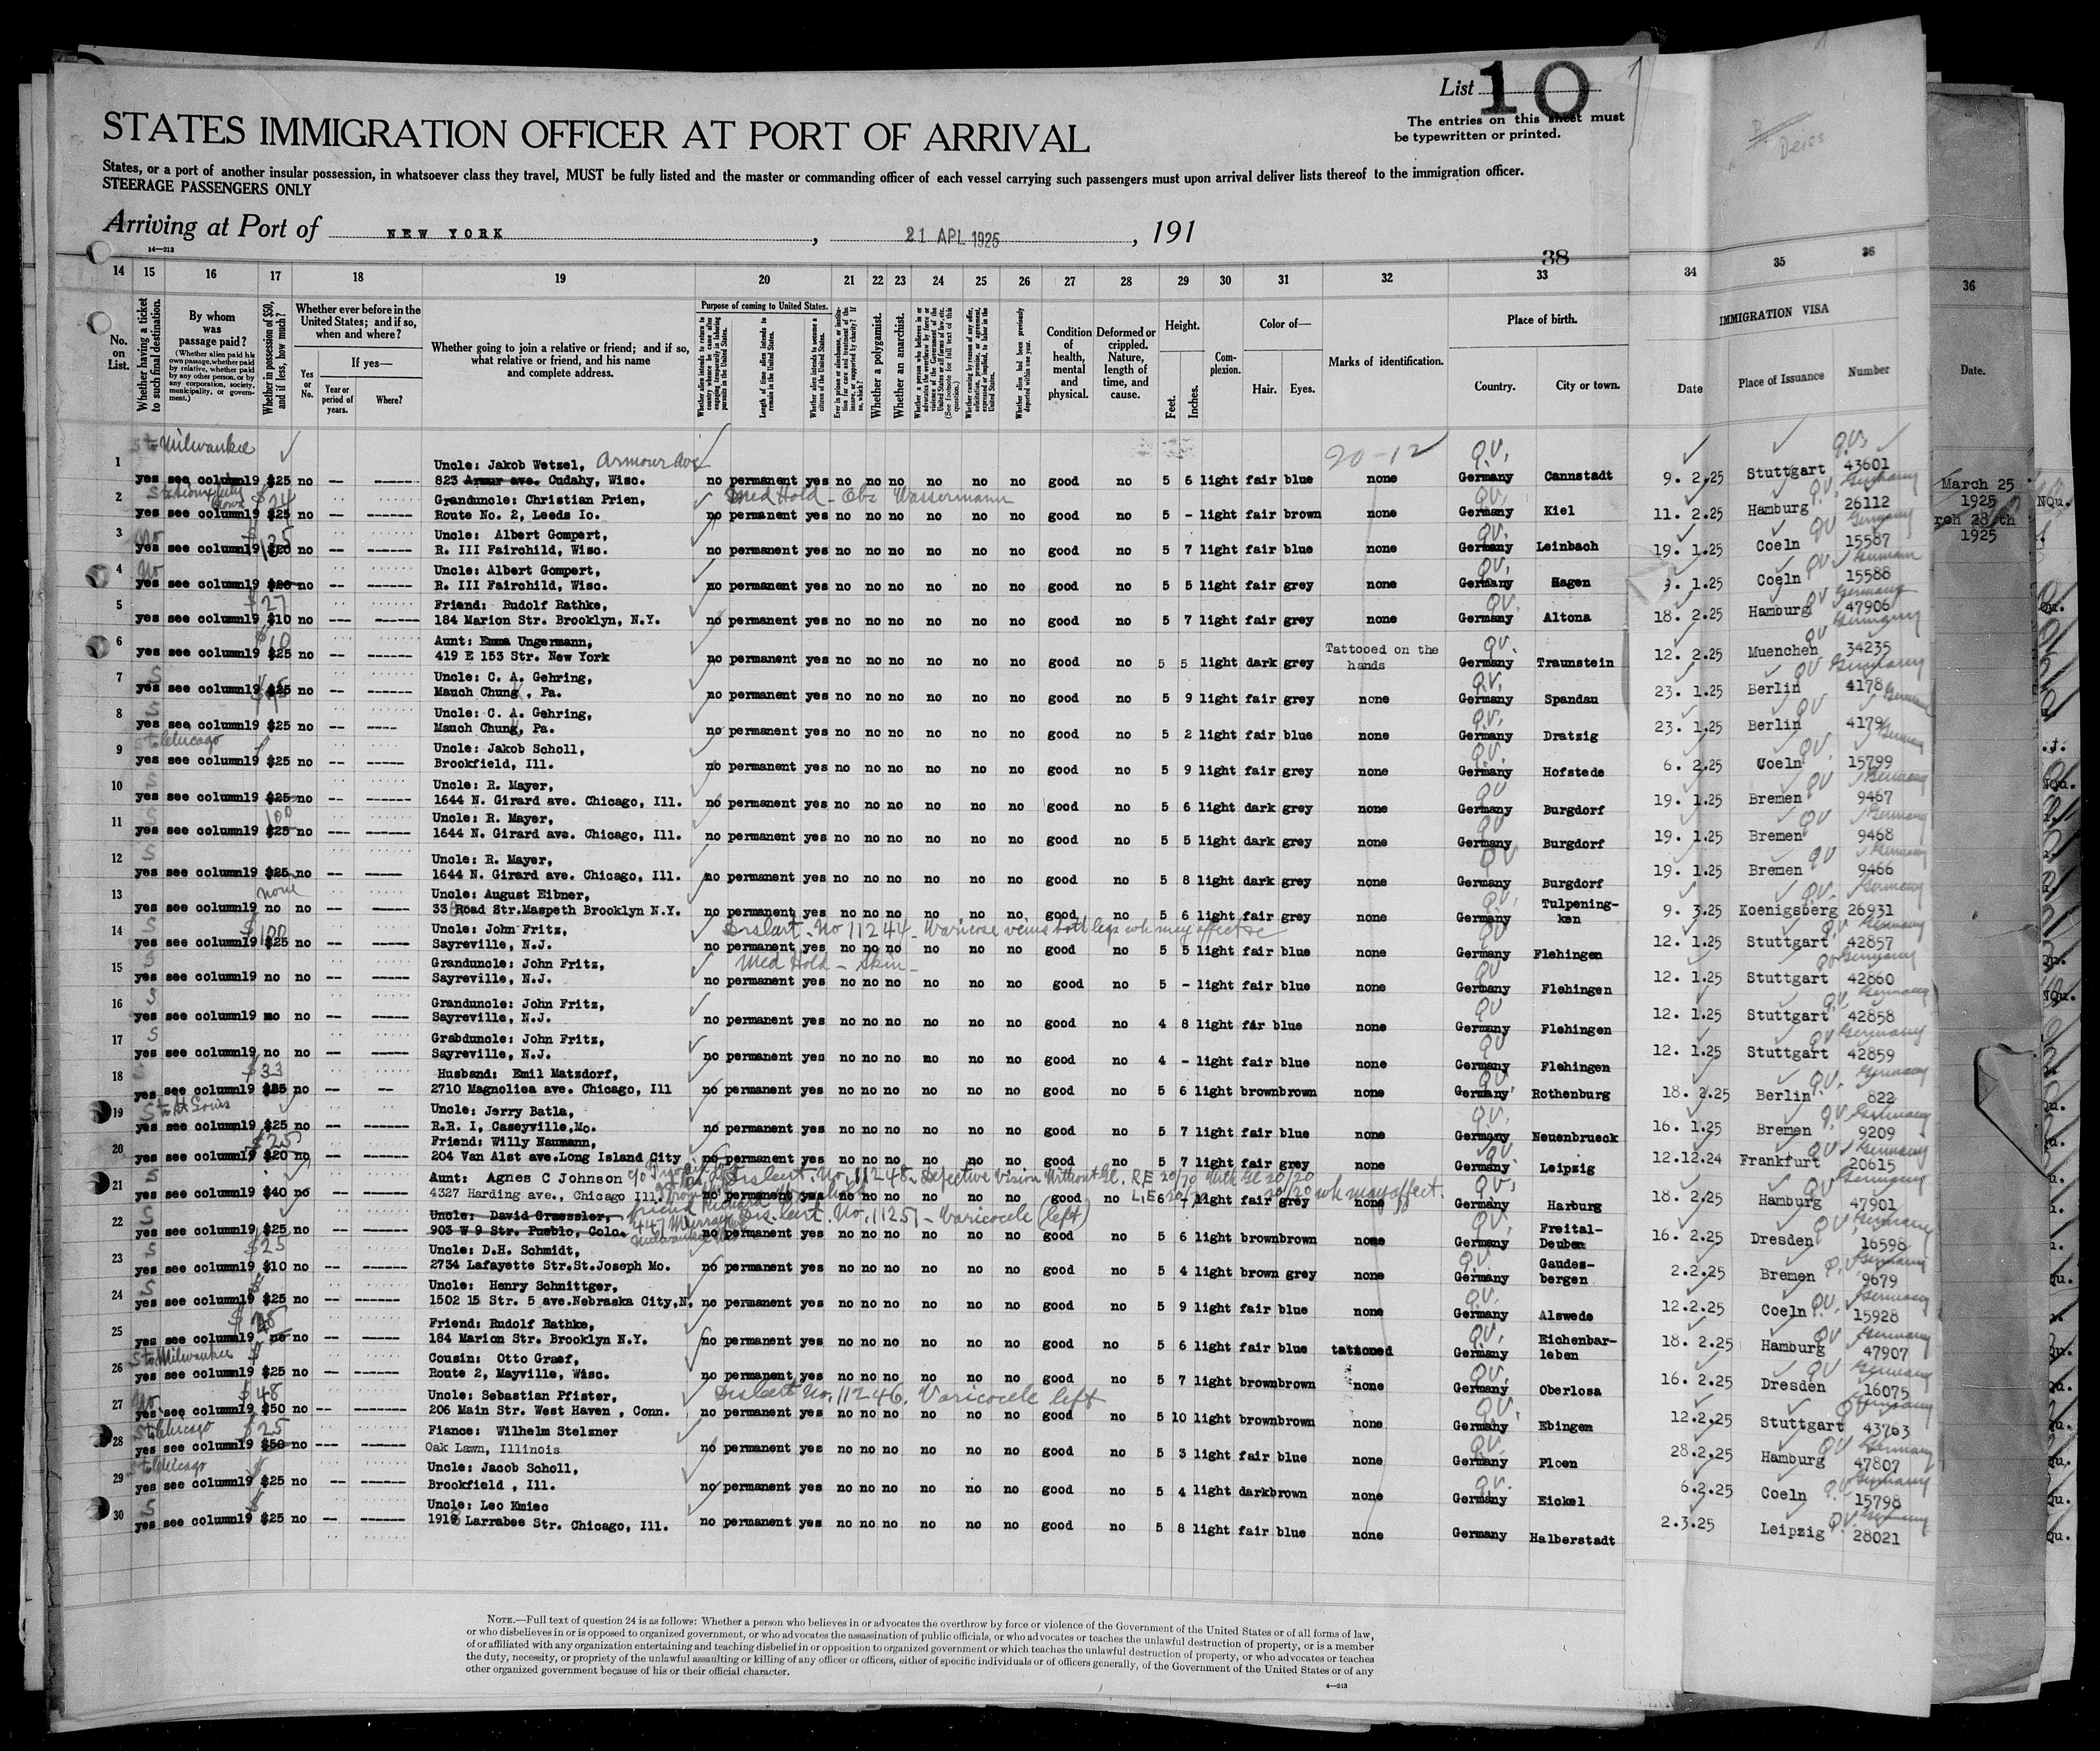 List 10
The entries on this sheet must
be typewritten or printed.
STATES IMMIGRATION OFFICER AT PORT OF ARRIVAL
States, or a port of another insular possession, in whatsoever class they travel, MUST be fully listed and the master or commanding officer of each vessel carrying such passengers must upon arrival deliver lists thereof to the immigration officer.
STEERAGE PASSENGERS ONLY
Arriving at Port of NEW YORK , 21 APL 1925 , 191
14—213
38
14 15 16 17 18 19 20 21 22 23 24 25 26 27 28 29 30 31 32 33 34 35 36 36
No. on List.
Whether having a ticket to such final destination.
By whom was passage paid?
(Whether alien paid his own passage, whether paid by relative, whether paid by any other person, or by any corporation, society, municipality, or government.)
Whether in possession of $50, and if less, how much?
Whether ever before in the United States; and if so, when and where?
Yes or No.
If yes—
Year or period of years.
Where?
Whether going to join a relative or friend; and if so, what relative or friend, and his name and complete address.
Purpose of coming to United States.
Length of time alien intends to remain in the United States.
Whether alien intends to become a citizen of the United States.
Whether a polygamist.
Whether an anarchist.
Condition of health, mental and physical.
Deformed or crippled. Nature, length of time, and cause.
Height.
Feet. Inches.
Complexion.
Color of—
Hair. Eyes.
Marks of identification.
Place of birth.
Country. City or town.
IMMIGRATION VISA
Date Place of Issuance Number
Date.
Deiss
March 25
1925
1925
NQu.
St Milwaukee 20-12 QV.
1 yes see column19 $25 no -- ----- Uncle: Jakob Wetzel, Armour Ave
823 Armur ave. Cudahy, Wisc. no permanent yes no no no no no no good no 5 6 light fair blue none Germany Cannstadt 9. 2.25 Stuttgart 43601
2 Granduncle: Christian Prien, Med Hold - Obs Wassermann
yes see column19 $25 no -- ----- Route No. 2, Leeds Io. no permanent yes no no no no no no good no 5 - light fair brown none Germany Kiel 11. 2.25 Hamburg 26112
3 Uncle: Albert Gompert,
yes see column19 $20 no -- ----- R. III Fairchild, Wisc. no permanent yes no no no no no no good no 5 7 light fair blue none Germany Leinbach 19. 1.25 Coeln 15587
4 Uncle: Albert Gompert,
yes see column19 $20 no -- ----- R. III Fairchild, Wisc. no permanent yes no no no no no no good no 5 5 light fair grey none Germany Hagen 9. 1.25 Coeln 15588
5 $27 Friend: Rudolf Rathke,
yes see column19 $10 no --- ------ 184 Marion Str. Brooklyn, N.Y. no permanent yes no no no no no no good no 5 7 light fair grey none Germany Altona 18. 2.25 Hamburg 47906
6 Aunt: Emma Ungermann,
yes see column19 $25 no -- ------ 419 E 153 Str. New York no permanent yes no no no no no no good no 5 5 light dark grey Tattooed on the hands Germany Traunstein 12. 2.25 Muenchen 34235
7 Uncle: C. A. Gehring,
yes see column19 $25 no -- ----- Mauch Chung, Pa. no permanent yes no no no no no no good no 5 9 light fair grey none Germany Spandau 23. 1.25 Berlin 4178
8 Uncle: C. A. Gehring,
yes see column19 $25 no -- ----- Mauch Chung, Pa. no permanent yes no no no no no no good no 5 2 light fair blue none Germany Dratzig 23. 1.25 Berlin 4179
St Chicago
9 Uncle: Jakob Scholl,
yes see column19 $25 no -- ----- Brookfield, Ill. no permanent yes no no no no no no good no 5 9 light fair grey none Germany Hofstede 6. 2.25 Coeln 15799
10 Uncle: R. Mayer,
yes see column19 $25 no -- ------ 1644 N. Girard ave. Chicago, Ill. no permanent yes no no no no no no good no 5 6 light dark grey none Germany Burgdorf 19. 1.25 Bremen 9467
11 100 Uncle: R. Mayer,
yes see column19 $25 no --- ------ 1644 N. Girard ave. Chicago, Ill. no permanent yes no no no no no no good no 5 5 light dark grey none Germany Burgdorf 19. 1.25 Bremen 9468
12 Uncle: R. Mayer,
yes see column19 $25 no -- ----- 1644 N. Girard ave. Chicago, Ill. no permanent yes no no no no no no good no 5 8 light dark grey none Germany Burgdorf 19. 1.25 Bremen 9466
13 none Uncle: August Eibner,
yes see column19 no no -- ----- 33 Road Str.Maspeth Brooklyn N.Y. no permanent yes no no no no no no good no 5 6 light fair grey none Germany Tulpeningken 9. 3.25 Koenigsberg 26931
14 $100 Uncle: John Fritz, Dis cert. No 11244 - Varicose veins both legs wh may affect
yes see column19 $25 no -- ----- Sayreville, N.J. no permanent yes no no no no no no good no 5 5 light fair blue none Germany Flehingen 12. 1.25 Stuttgart 42857
15 Granduncle: John Fritz, Med Hold - Skin -
yes see column19 no no -- ----- Sayreville, N.J. no permanent yes no no no no no no good no 5 - light fair blue none Germany Flehingen 12. 1.25 Stuttgart 42860
16 Granduncle: John Fritz,
yes see column19 no no -- ----- Sayreville, N.J. no permanent yes no no no no no no good no 4 8 light fair blue none Germany Flehingen 12. 1.25 Stuttgart 42858
17 Grabduncle: John Fritz,
yes see column19 no no -- ----- Sayreville, N.J. no permanent yes no no no no no no good no 4 - light fair blue none Germany Flehingen 12. 1.25 Stuttgart 42859
18 $33 Husband: Emil Matzdorf,
yes see column19 $25 no -- -- 2710 Magnoliea ave. Chicago, Ill no permanent yes no no no no no no good no 5 6 light brown brown none Germany Rothenburg 18. 2.25 Berlin 822
St Louis
19 Uncle: Jerry Batla,
yes see column19 $25 no -- ----- R.R. I, Caseyville,Mo. no permanent yes no no no no no no good no 5 7 light fair blue none Germany Neuenbrueck 16. 1.25 Bremen 9209
20 $25 Friend: Willy Naumann,
yes see column19 $20 no -- ------ 204 Van Alst ave.Long Island City no permanent yes no no no no no no good no 5 7 light fair grey none Germany Leipzig 12.12.24 Frankfurt 20615
21 Aunt: Agnes C Johnson Dis cert. No. 11248. Defective vision Without Gl. R.E 20/70 With Gl 20/20 L.E wh may affect.
yes see column19 $40 no -- ----- 4327 Harding ave., Chicago Ill. no permanent yes no no no no no no good no 6 7 light fair grey none Germany Harburg 18. 2.25 Hamburg 47901
22 Uncle: David Graessler, friend 447 Murray Milwaukee Dis. cert. No. 11251 - Varicocele (left)
yes see column19 $25 no -- ------ 903 W 9 Str. Pueblo, Colo. no permanent yes no no no no no no good no 5 6 light brown brown none Germany Freital-Deuben 16. 2.25 Dresden 16598
23 $25 Uncle: D.H. Schmidt,
yes see column19 $10 no -- ------ 2734 Lafayette Str.St.Joseph Mo. no permanent yes no no no no no no good no 5 4 light brown grey none Germany Gaudesbergen 2.2.25 Bremen 9679
24 Uncle: Henry Schnittger,
yes see column19 $25 no -- ------- 1502 15 Str. 5 ave.Nebraska City,N. no permanent yes no no no no no no good no 5 9 light fair blue none Germany Alswede 12.2.25 Coeln 15928
25 Friend: Rudolf Rathke,
yes see column19 no no -- ------ 184 Marion Str. Brooklyn N.Y. no permanent yes no no no no no no good no 5 6 light fair blue tattooed Germany Eichenbarleben 18. 2.25 Hamburg 47907
St Milwaukee
26 Cousin: Otto Graef,
yes see column19 $25 no -- ------ Route 2, Mayville, Wisc. no permanent yes no no no no no no good no 5 7 light brown brown none Germany Oberlosa 16. 2.25 Dresden 16075
27 $48 Uncle: Sebastian Pfister, Dis cert No. 11246. Varicocele left
yes see column19 $50 no -- ------- 206 Main Str. West Haven , Conn. no permanent yes no no no no no no good no 5 10 light brown brown none Germany Ebingen 12.2.25 Stuttgart 43763
St Chicago $25
28 Fiance: Wilhelm Stelzner
yes see column19 $50 no --- ------ Oak Lawn, Illinois no permanent yes no no no no no no good no 5 3 light fair blue none Germany Ploen 28.2.25 Hamburg 47807
St Chicago
29 Uncle: Jacob Scholl,
yes see column19 $25 no -- ------ Brookfield , Ill. no permanent yes no no no no no no good no 5 4 light dark brown none Germany Eickel 6.2.25 Coeln 15798
30 Uncle: Leo Kmiec
yes see column19 $25 no -- ------ 1918 Larrabee Str. Chicago, Ill. no permanent yes no no no no no no good no 5 8 light fair blue none Germany Halberstadt 2.3.25 Leipzig 28021
NOTE.—Full text of question 24 is as follows: Whether a person who believes in or advocates the overthrow by force or violence of the Government of the United States or of all forms of law,
or who disbelieves in or is opposed to organized government, or who advocates the assassination of public officials, or who advocates or teaches the unlawful destruction of property, or is a member
of or affiliated with any organization entertaining and teaching disbelief in or opposition to organized government or which teaches the unlawful destruction of property, or who advocates or teaches
the duty, necessity, or propriety of the unlawful assaulting or killing of any officer or officers, either of specific individuals or of officers generally, of the Government of the United States or of any
other organized government because of his or their official character.
4—213